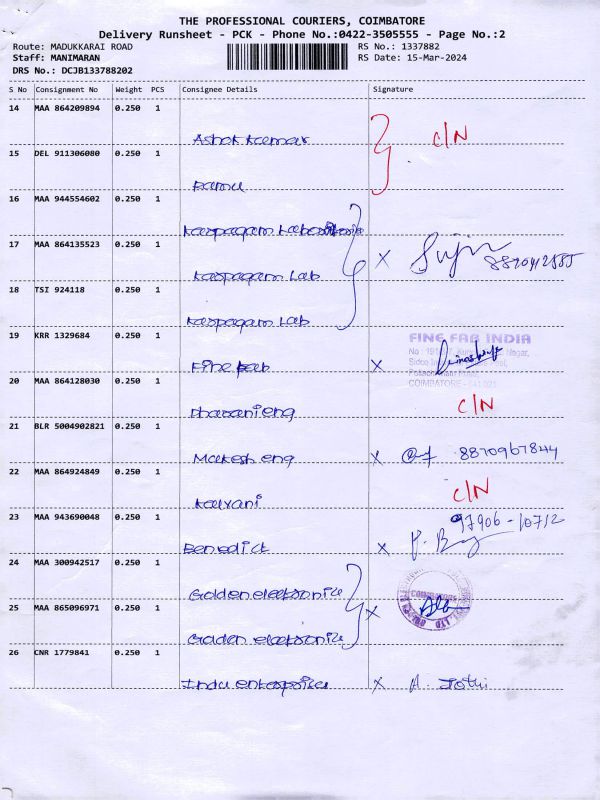 THE PROFESSIONAL COURIERS, COIMBATORE
Delivery Runsheet - PCK - Phone No.:0422-3505555 - Page No.:2
Route: MADUKKARAI ROAD RS No.: 1337882
Staff: MANIMARAN RS Date: 15-Mar-2024
DRS No.: DCJB133788202
S No Consignment No Weight PCS Consignee Details Signature
14 MAA 864209894 0.250 1
Ashok kumar C/N
15 DEL 911306080 0.250 1
Ramu
16 MAA 944554602 0.250 1
Karpagam
17 MAA 864135523 0.250 1
Karpagam Lab X
18 TSI 924118 0.250 1
Karpagam Lab
19 KRR 1329684 0.250 1 FINE FAB INDIA
Fine fab X
COIMBATORE
20 MAA 864128030 0.250 1
Dharani eng C/N
21 BLR 5004902821 0.250 1
Makesh eng X 8870967844
22 MAA 864924849 0.250 1
Kalyani C/N
23 MAA 943690048 0.250 1 97906-10712
Benedict X
24 MAA 300942517 0.250 1
Golden electronics
25 MAA 865096971 0.250 1 X
Golden electronics
26 CNR 1779841 0.250 1
Indu enterprise X A. Jothi